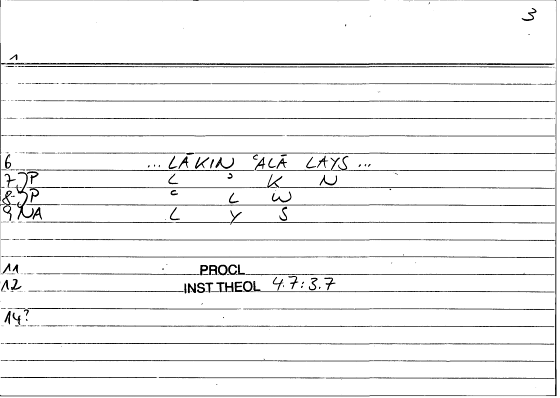 3
1
6 ... LĀKIN ʿALĀ LAYS ...
7 JP L ʾ K N
8 JP ʿ L W
9 NA L Y S
11 PROCL
12 INST THEOL 4.7:3.7
14?